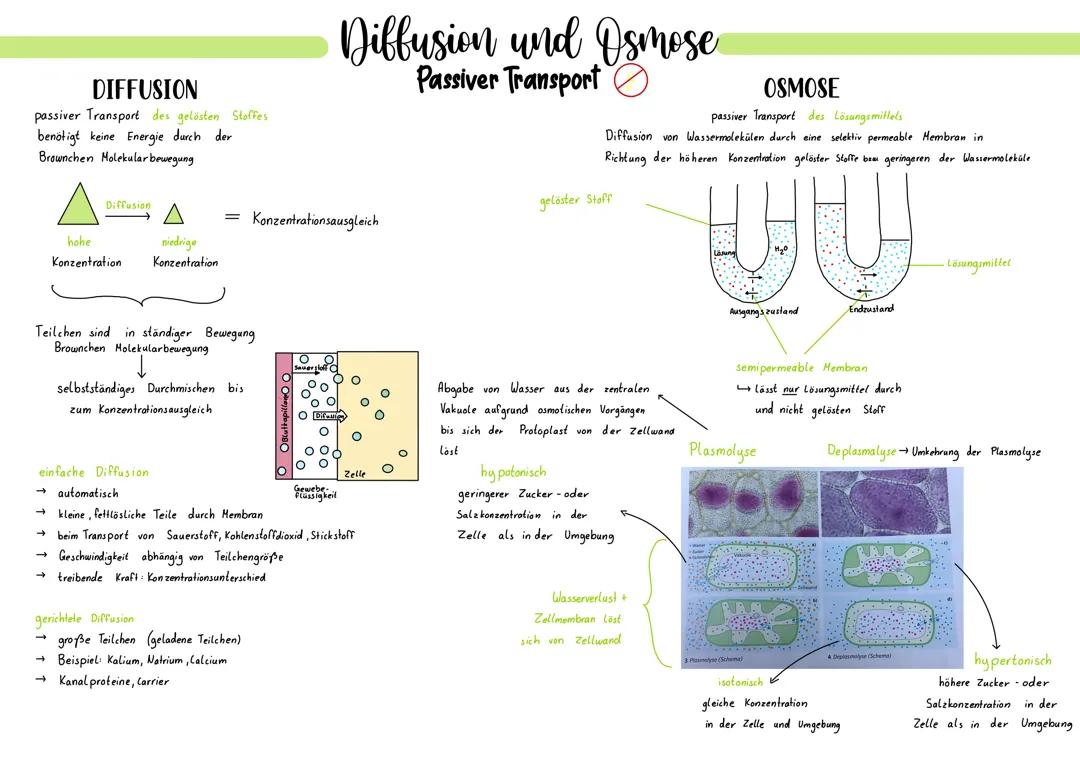 Diffusion und Osmose
Passiver Transport
DIFFUSION
passiver Transport des gelösten Stoffes
benötigt keine Energie durch der
Brownchen Molekularbewegung
Diffusion
hohe
Konzentration
niedrige
Konzentration
= Konzentrationsausgleich
Teilchen sind in ständiger Bewegung
Brownchen Molekularbewegung
selbstständiges Durchmischen bis
zum Konzentrationsausgleich
Blutkapillare
Sauerstoff
Diffusion
Zelle
Gewebe-
flüssigkeit
einfache Diffusion
→ automatisch
→ kleine, fettlösliche Teile durch Membran
→ beim Transport von Sauerstoff, Kohlenstoffdioxid, Stickstoff
→ Geschwindigkeit abhängig von Teilchengröße
→ treibende Kraft: Konzentrationsunterschied
gerichtete Diffusion
→ große Teilchen (geladene Teilchen)
→ Beispiel: Kalium, Natrium, Calcium
→ Kanalproteine, Carrier
OSMOSE
passiver Transport des Lösungsmittels
Diffusion von Wassermolekülen durch eine selektiv permeable Membran in
Richtung der höheren Konzentration gelöster Stoffe bzw. geringeren der Wassermoleküle
gelöster Stoff
Lösung
H₂O
Lösungsmittel
Ausgangszustand
Endzustand
semipermeable Membran
↳ lässt nur Lösungsmittel durch
und nicht gelösten Stoff
Abgabe von Wasser aus der zentralen
Vakuole aufgrund osmotischen Vorgängen
bis sich der Protoplast von der Zellwand
löst
Plasmolyse
Deplasmolyse → Umkehrung der Plasmolyse
hypotonisch
geringerer Zucker- oder
Salzkonzentration in der
Zelle als in der Umgebung
Wasserverlust +
Zellmembran löst
sich von Zellwand
Wasser
Zucker
Vakuole
a)
c)
b)
d)
3 Plasmolyse (Schema)
4 Deplasmolyse (Schema)
isotonisch
gleiche Konzentration
in der Zelle und Umgebung
hypertonisch
höhere Zucker- oder
Salzkonzentration in der
Zelle als in der Umgebung